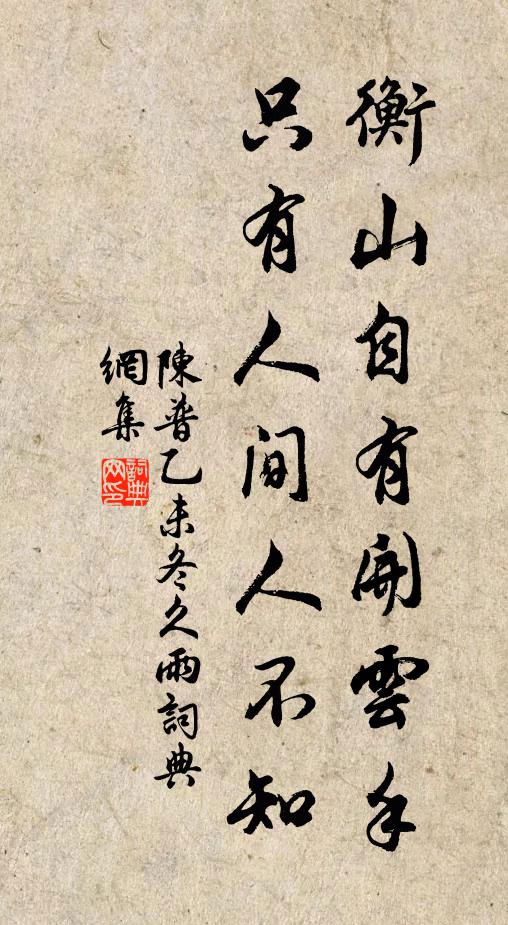 衡山自有開雲手
只有人間人不知
陳普乙未冬久雨詞典
網集
詞典
網印